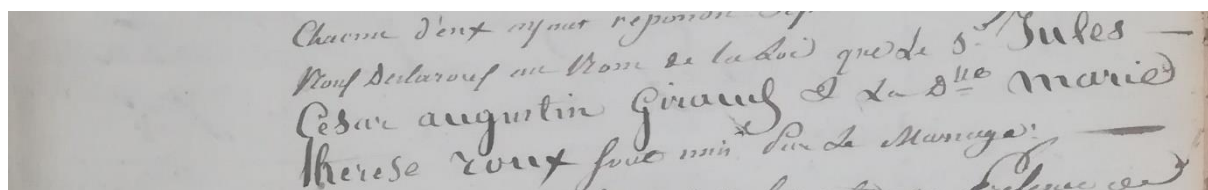 Chacune d'eux ayant repondu
Nous Declarons au Nom de la Loi que Le Sr. Jules —
César augustin Giraud & La Dlle marie
therese roux sont unis Par Le Mariage. —
Presence de